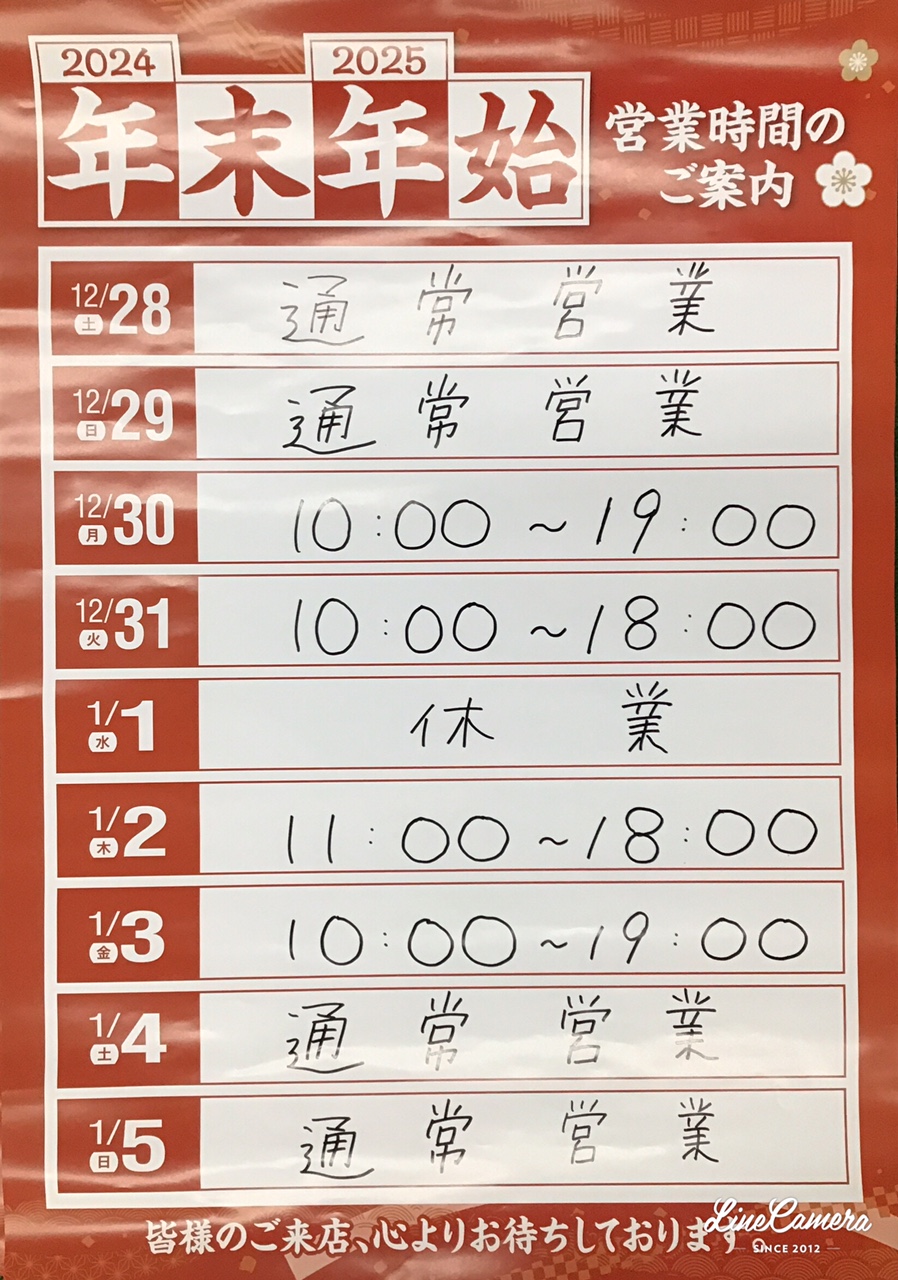 2024 2025
年末年始
営業時間の
ご案内
12/28 土 通常営業
12/29 日 通常営業
12/30 月 10:00～19:00
12/31 火 10:00～18:00
1/1 水 休業
1/2 木 11:00～18:00
1/3 金 10:00～19:00
1/4 土 通常営業
1/5 日 通常営業
皆様のご来店、心よりお待ちしております
LineCamera
SINCE 2012